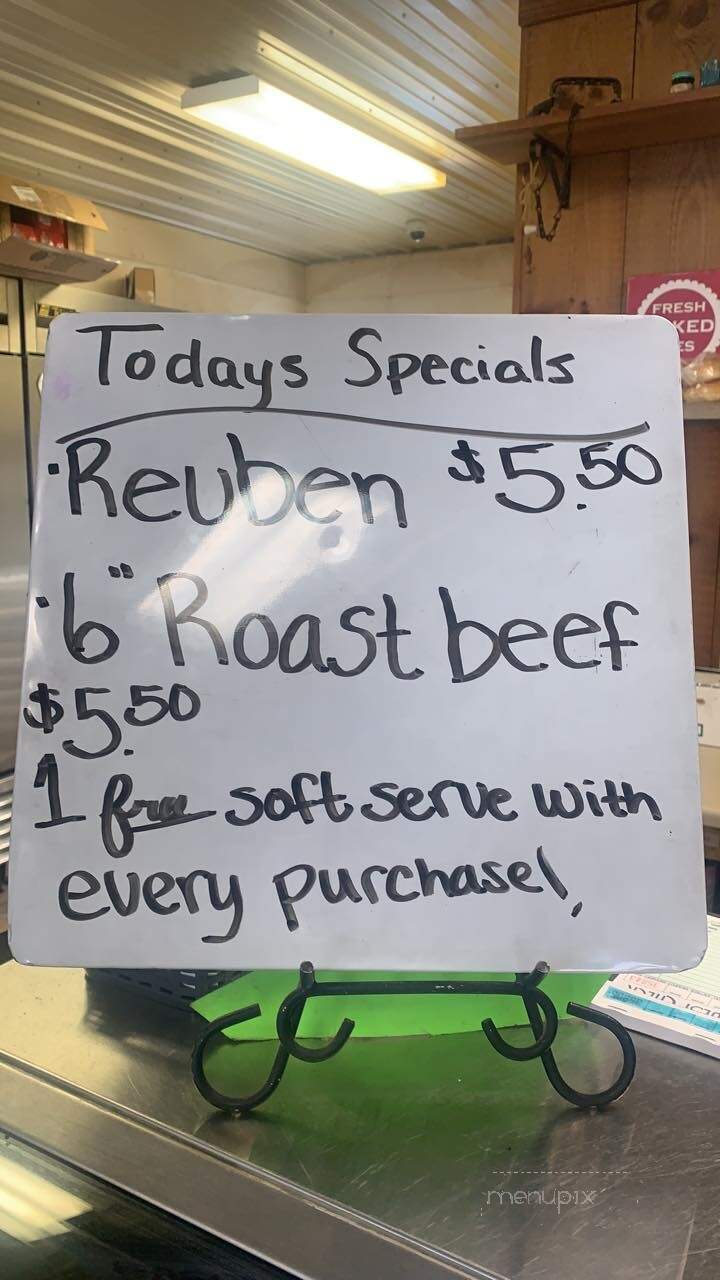 Todays Specials
·Reuben $5.50
·6" Roast beef
$5.50
1 free soft serve with
every purchase!
FRESH
KED
ES
menupix